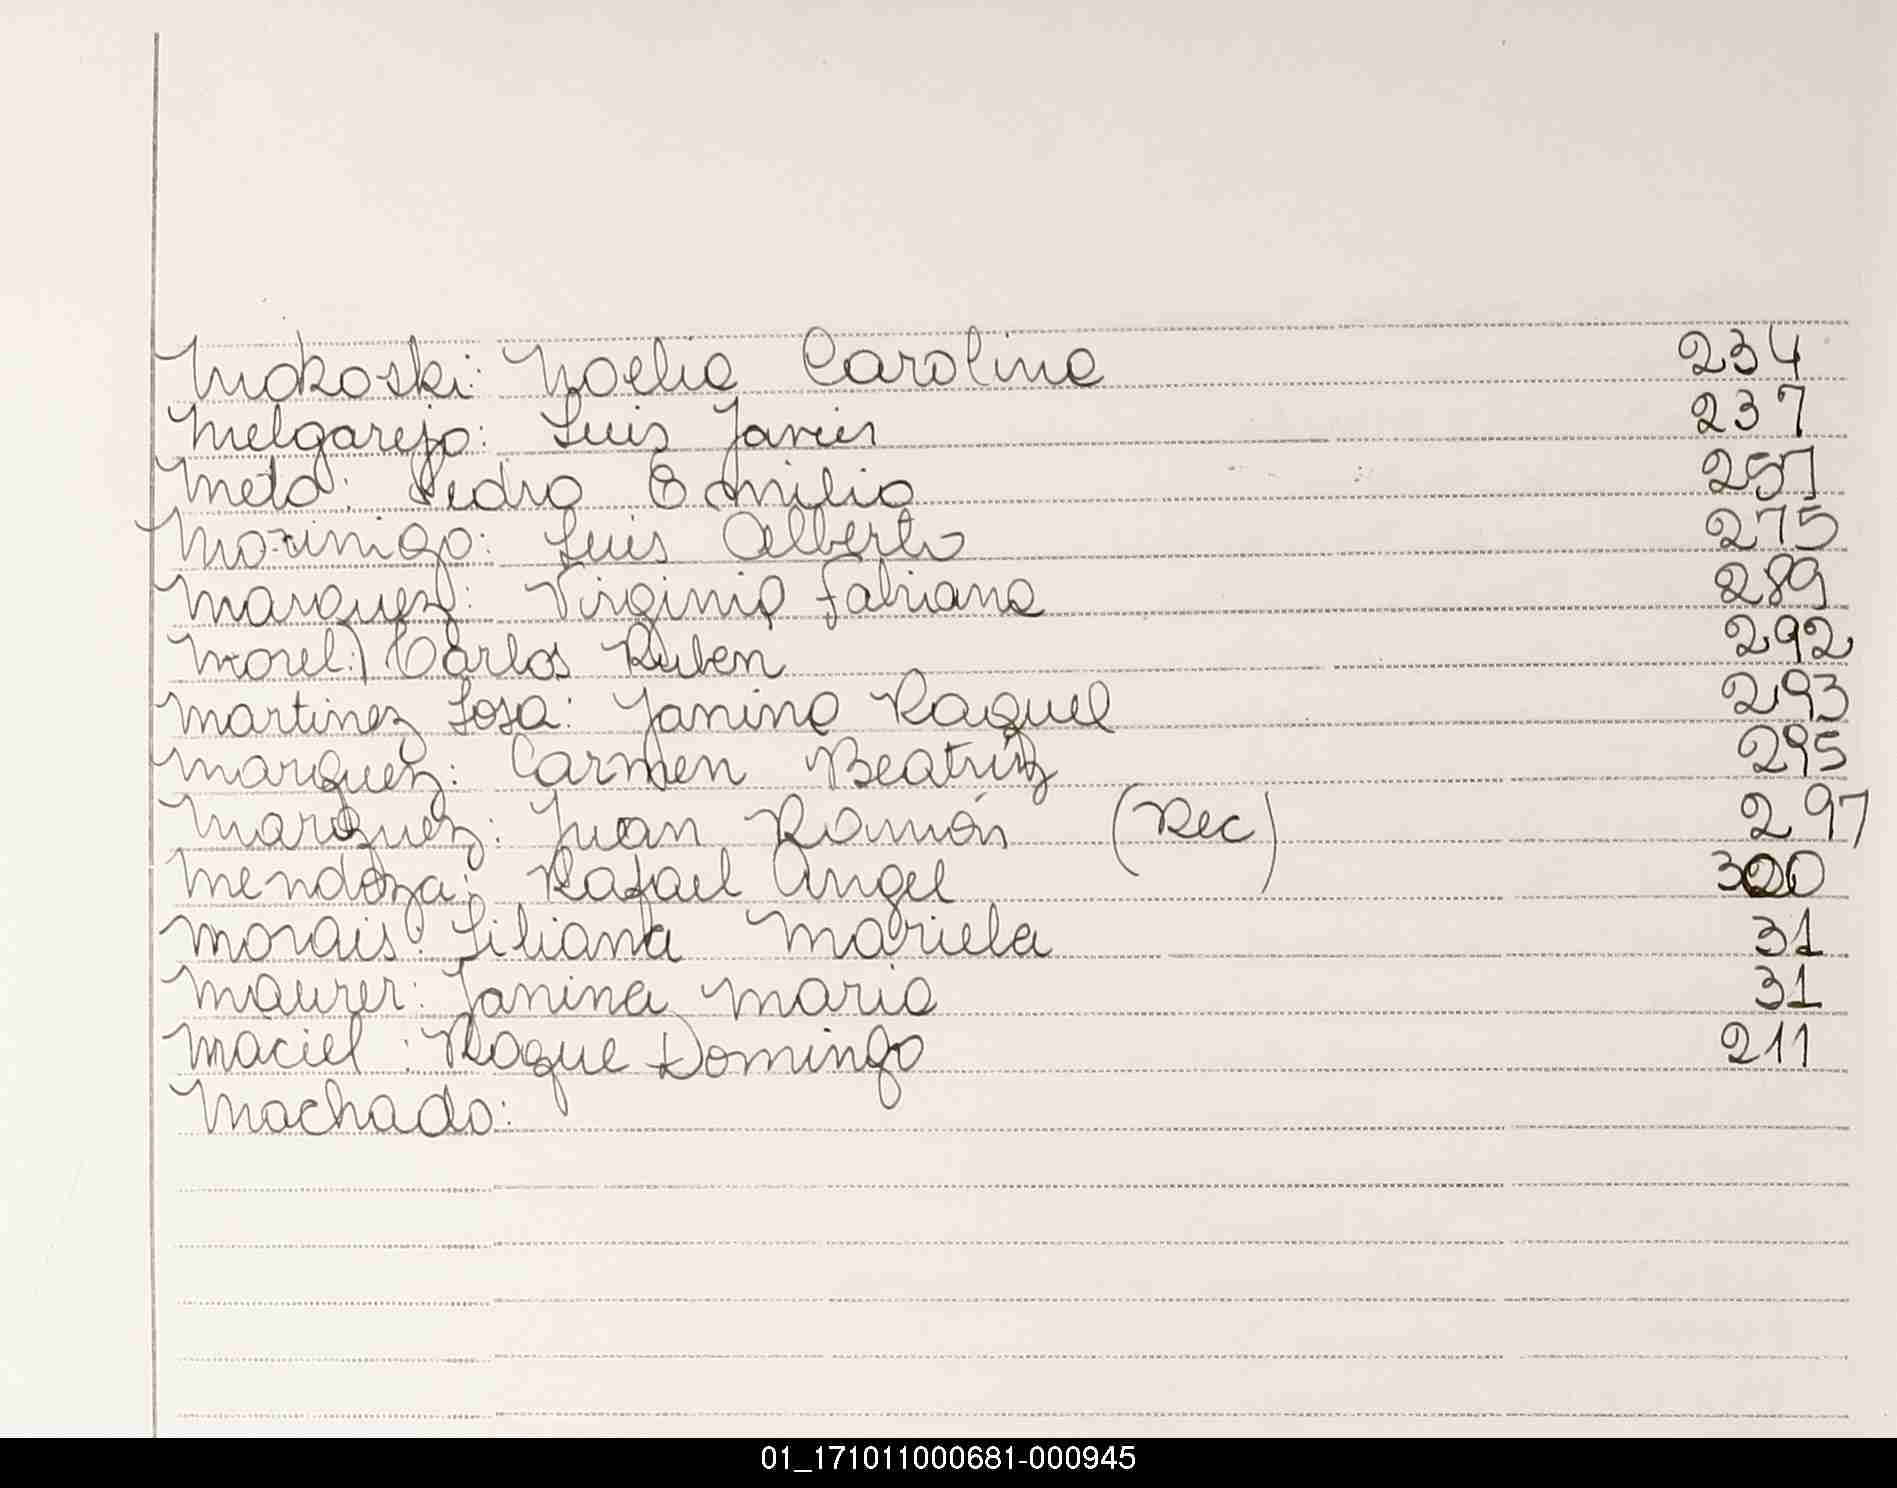 Mokoski: Noelia Carolina 234
Melgarejo: Luis Javier 237
Meta: Pedro Emilio 257
Morinigo: Luis Alberto 275
Marquez: Virginia Fabiana 289
Morel: Carlos Ruben 292
Martinez Sosa: Janina Raquel 293
Marquez: Carmen Beatriz 295
Marquez: Juan Ramón (Rec) 297
Mendoza: Rafael Angel 320
Morais: Liliana Mariela 31
Maurer: Janina Maria 31
Maciel: Roque Domingo 211
Machado:
01_171011000681-000945